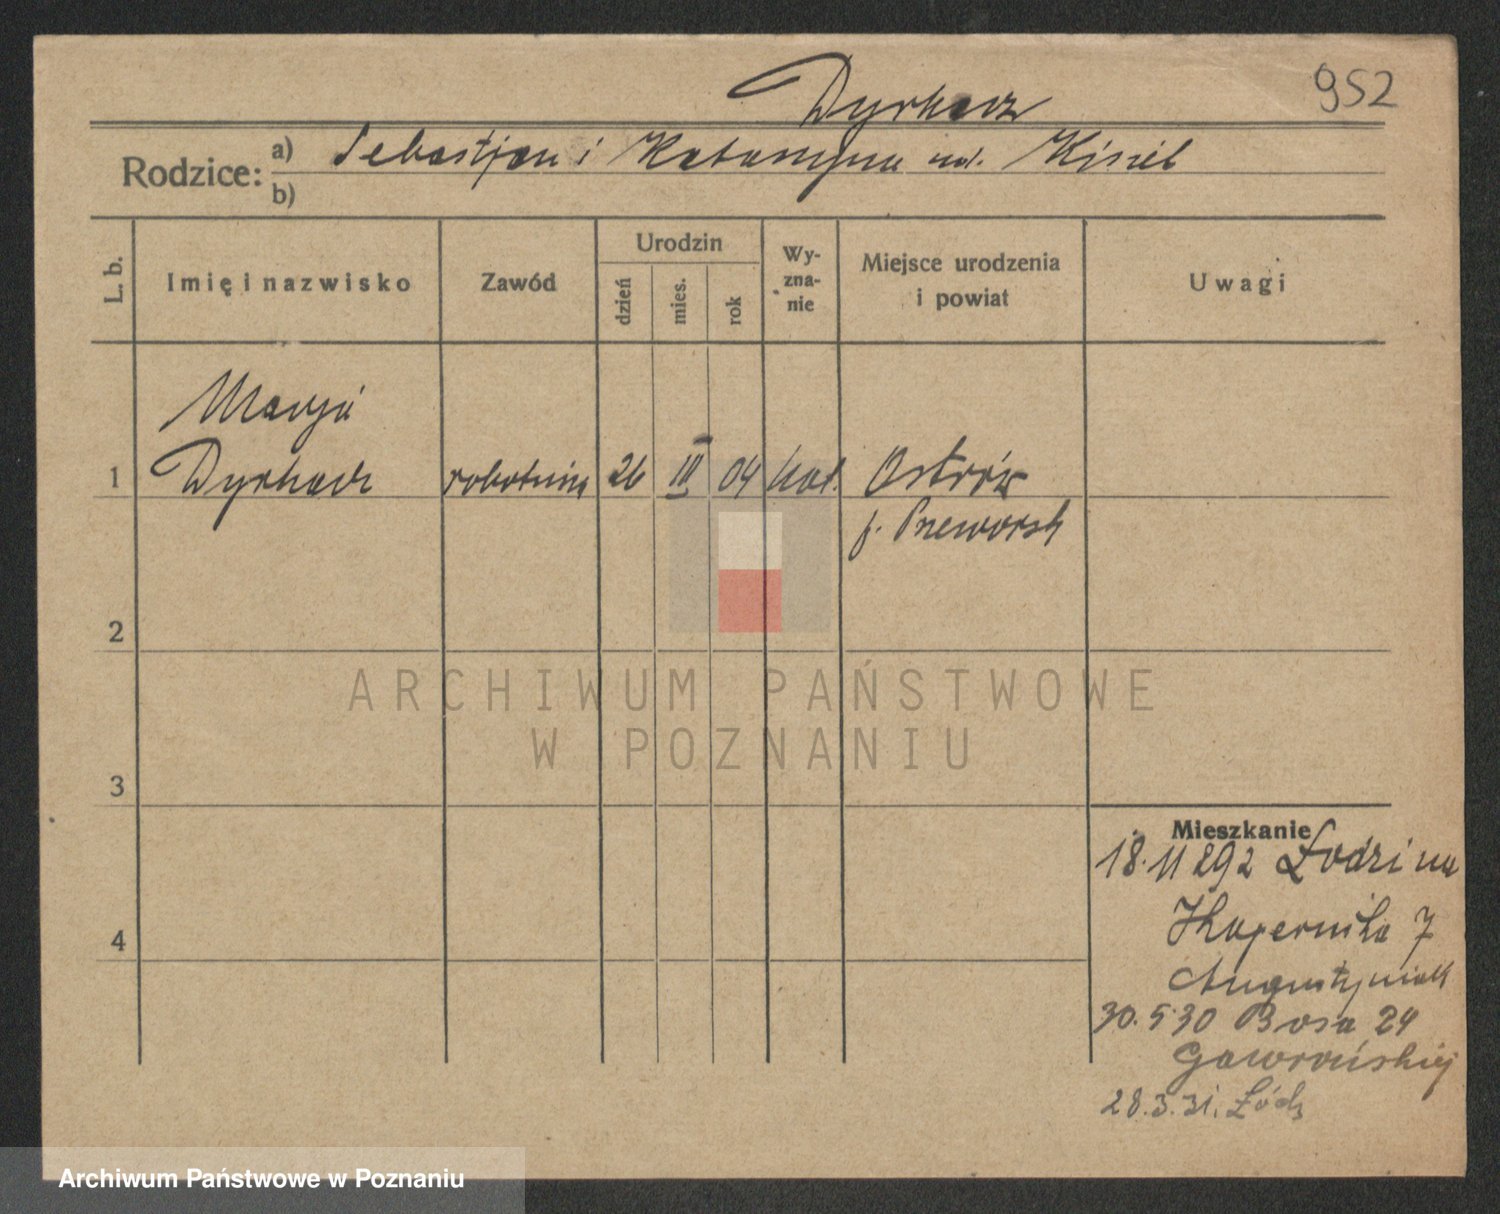 952
Dyrkacz
Rodzice: a) Sebastjan i Katarzyna Kisiel
b)
L. b. Imię i nazwisko Zawód Urodzin dzień mies. rok Wy-zna-nie Miejsce urodzenia i powiat Uwagi
Marja
1 Dyrkacz robotnica 26 III 04 kat. Ostrów
p. Przeworsk
2
3
4
Mieszkanie
18.11 29 z Łodzi na
Kopernika 7
Augustyniak
30.5.30 Bosa 24
Gaworońskiej
28.3.31. Łódź
ARCHIWUM PAŃSTWOWE
W POZNANIU
Archiwum Państwowe w Poznaniu